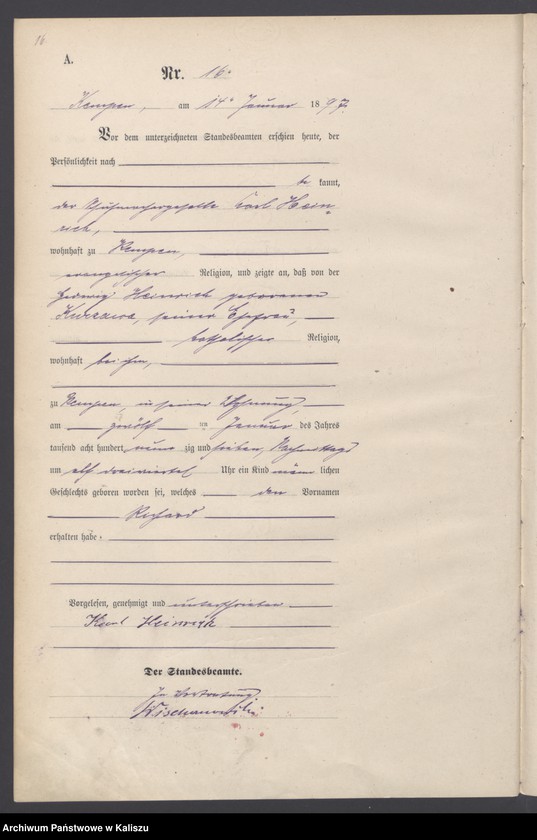 16
A.
Nr. 16.
Kempen, am 14ᵗ Januar 1897.
Vor dem unterzeichneten Standesbeamten erschien heute, der
Persönlichkeit nach
be kannt,
der Schuhmachergeselle Karl Hein-
rich,
wohnhaft zu Kempen,
evangelischer Religion, und zeigte an, daß von der
Hedwig Heinrich geborenen
Kurzawa, seiner Ehefrau,
katholischer Religion,
wohnhaft bei ihm,
zu Kempen, in seiner Wohnung,
am zwölf ten Januar des Jahres
tausend acht hundert neun zig und sieben, Nachmittags
um elf dreiviertel Uhr ein Kind männ lichen
Geschlechts geboren worden sei, welches den Vornamen
Richard
erhalten habe.
Vorgelesen, genehmigt und unterschrieben
Karl Heinrich
Der Standesbeamte.
In Vertretung
Archiwum Państwowe w Kaliszu